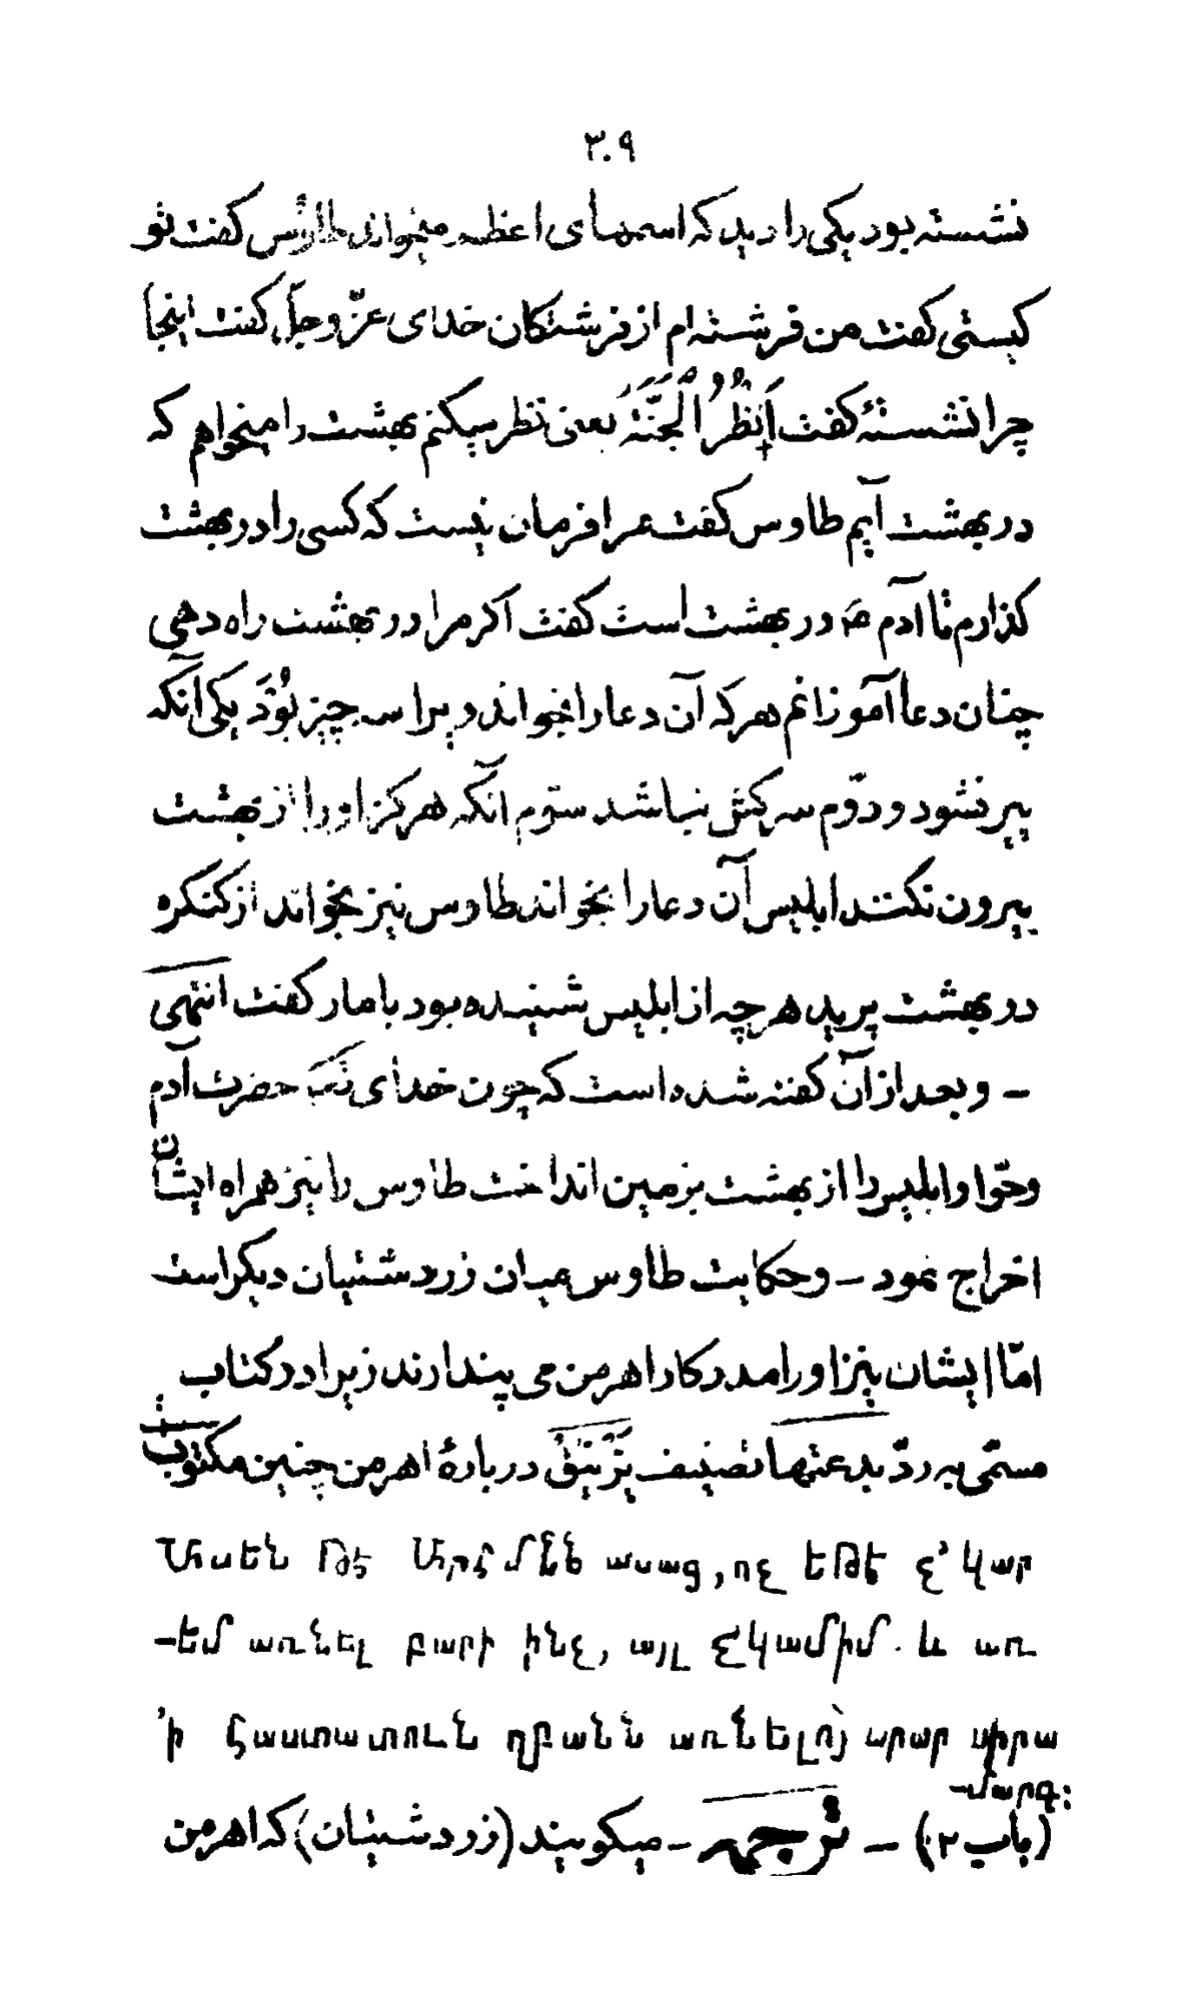 ٣٠٩
نشسته بود یکی را دید که اسمهای اعظم میخواند طاؤس کفت تو
کیستی کفت من فرشته ام از فرشتکان خدای عزّ وجلّ کفت اینجا
چرا نشستهٔ کفت اَنظُرُ الْجَنَّةَ یعنی نظر میکنم بهشت را میخواهم که
در بهشت آیم طاوس کفت مرا فرمان نیست که کسی را در بهشت
کذارم تا آدم در بهشت است کفت اکر مرا در بهشت راه دهی
چنان دعا آموزانم هر که آن دعا را بخواند ویرا سه چیز بُوَد یکی آنکه
پیر نشود و دوّم سرکش نباشد ستوم آنکه هرکز او را از بهشت
بیرون نکنند ابلیس آن دعا را بخواند طاوس نیز بخواند از کنکره
در بهشت پرید هر چه از ابلیس شنیده بود با مار کفت انتهی
– و بعد از آن کفته شده است که چون خدای حضرت آدم
و حوّا و ابلیس را از بهشت بزمین انداخت طاوس را نیز همراه ایشان
اخراج نمود – و حکایت طاوس میان زردشتیان دیکر است
امّا ایشان نیز او را مددکار اهرمن می پندارند زیرا در کتاب
مسمّی به ردّ بدعتها تصنیف یَزْنِیْقْ در بارهٔ اهرمن چنین مکتوبست
Ասեն թէ Արհմնն ասաց, ոչ եթէ չ՚կար
–եմ առնել բարի ինչ, այլ չկամիմ. և առ
՚ի հաստատուն զբանն առնելոյ արար սիրա
–մարգ:
(باب ٢) – ترجمه – میکویند (زردشتیان) که اهرمن